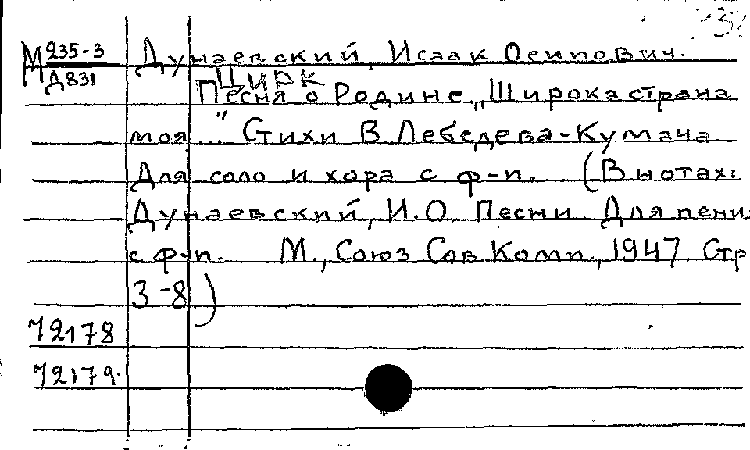 М 235-3 Дунаевский, Исаак Осипович.
Д831 Цирк
Песня о Родине „Широка страна
моя..." Стихи В. Лебедева-Кумача
Для соло и хора с ф-п. (В нотах:
Дунаевский, И.О. Песни. Для пени
с ф-п. М., Союз Сов Комп., 1947. Стр
3-8)
72178
72179.